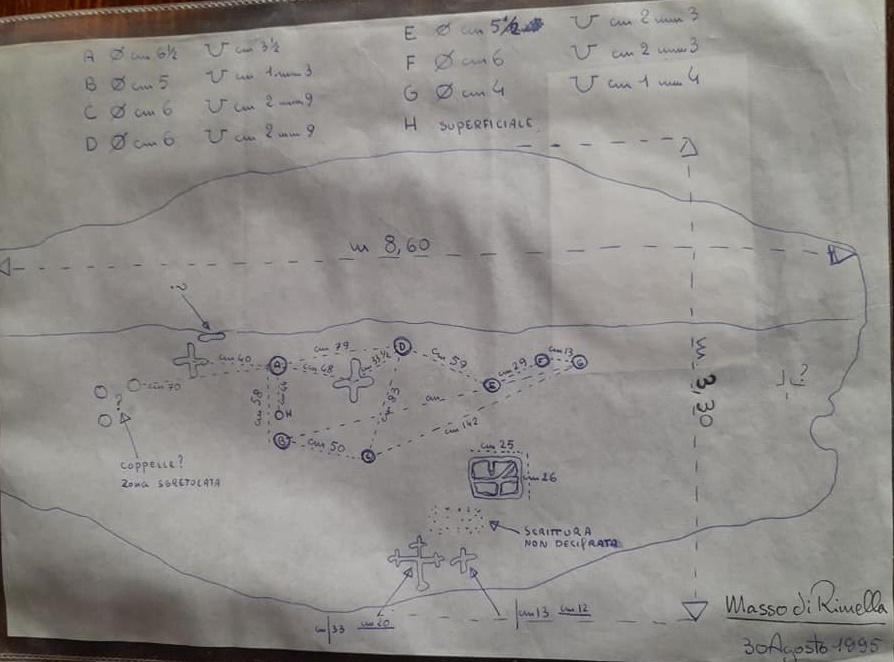 A Ø cm 6½ U cm 3½
B Ø cm 5 U cm 1 mm 3
C Ø cm 6 U cm 2 mm 9
D Ø cm 6 U cm 2 mm 9
E Ø cm 5½ U cm 2 mm 3
F Ø cm 6 U cm 2 mm 3
G Ø cm 4 U cm 1 mm 4
H SUPERFICIALE
m 8,60
?
cm 79
D
cm 40
A
cm 48
cm 33½
cm 59
E
cm 29
F
cm 13
G
m 3,30
?
cm 70
?
cm 58
H
cm 93
B
cm 50
C
cm
cm 142
COPPELLE?
ZONA SGRETOLATA
cm 25
cm 26
SCRITTURA
NON DECIFRATA
cm 33 cm 20
cm 13 cm 12
Masso di Rimella
30 Agosto 1995